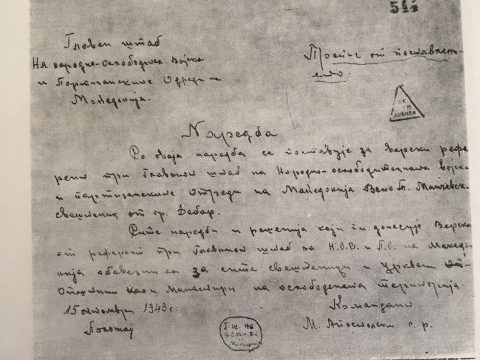 544
Главен штаб
На народно-ослободителна Војска
и Партизанские Одреди на
Македонија.
Препис от поставлень-
ето.
Наредба
Со оваја наредба се поставуја за верски рефе-
рент при Главниот штаб на Народно-ослободителната војска
и партизанските Отреди на Македонија Вело Т. Манчевски
свашченик от гр. Дебар.
Сите наредби и решенија који ги донесује Верски
от референт при Главниот штаб на Н.О.В. и П.О. на Македо-
нија обавезни са за сите свашченици и црквени
како и Манастири на ослободената територија
15 октомври 1943 г.
Командант
М. Апостолски с. р.